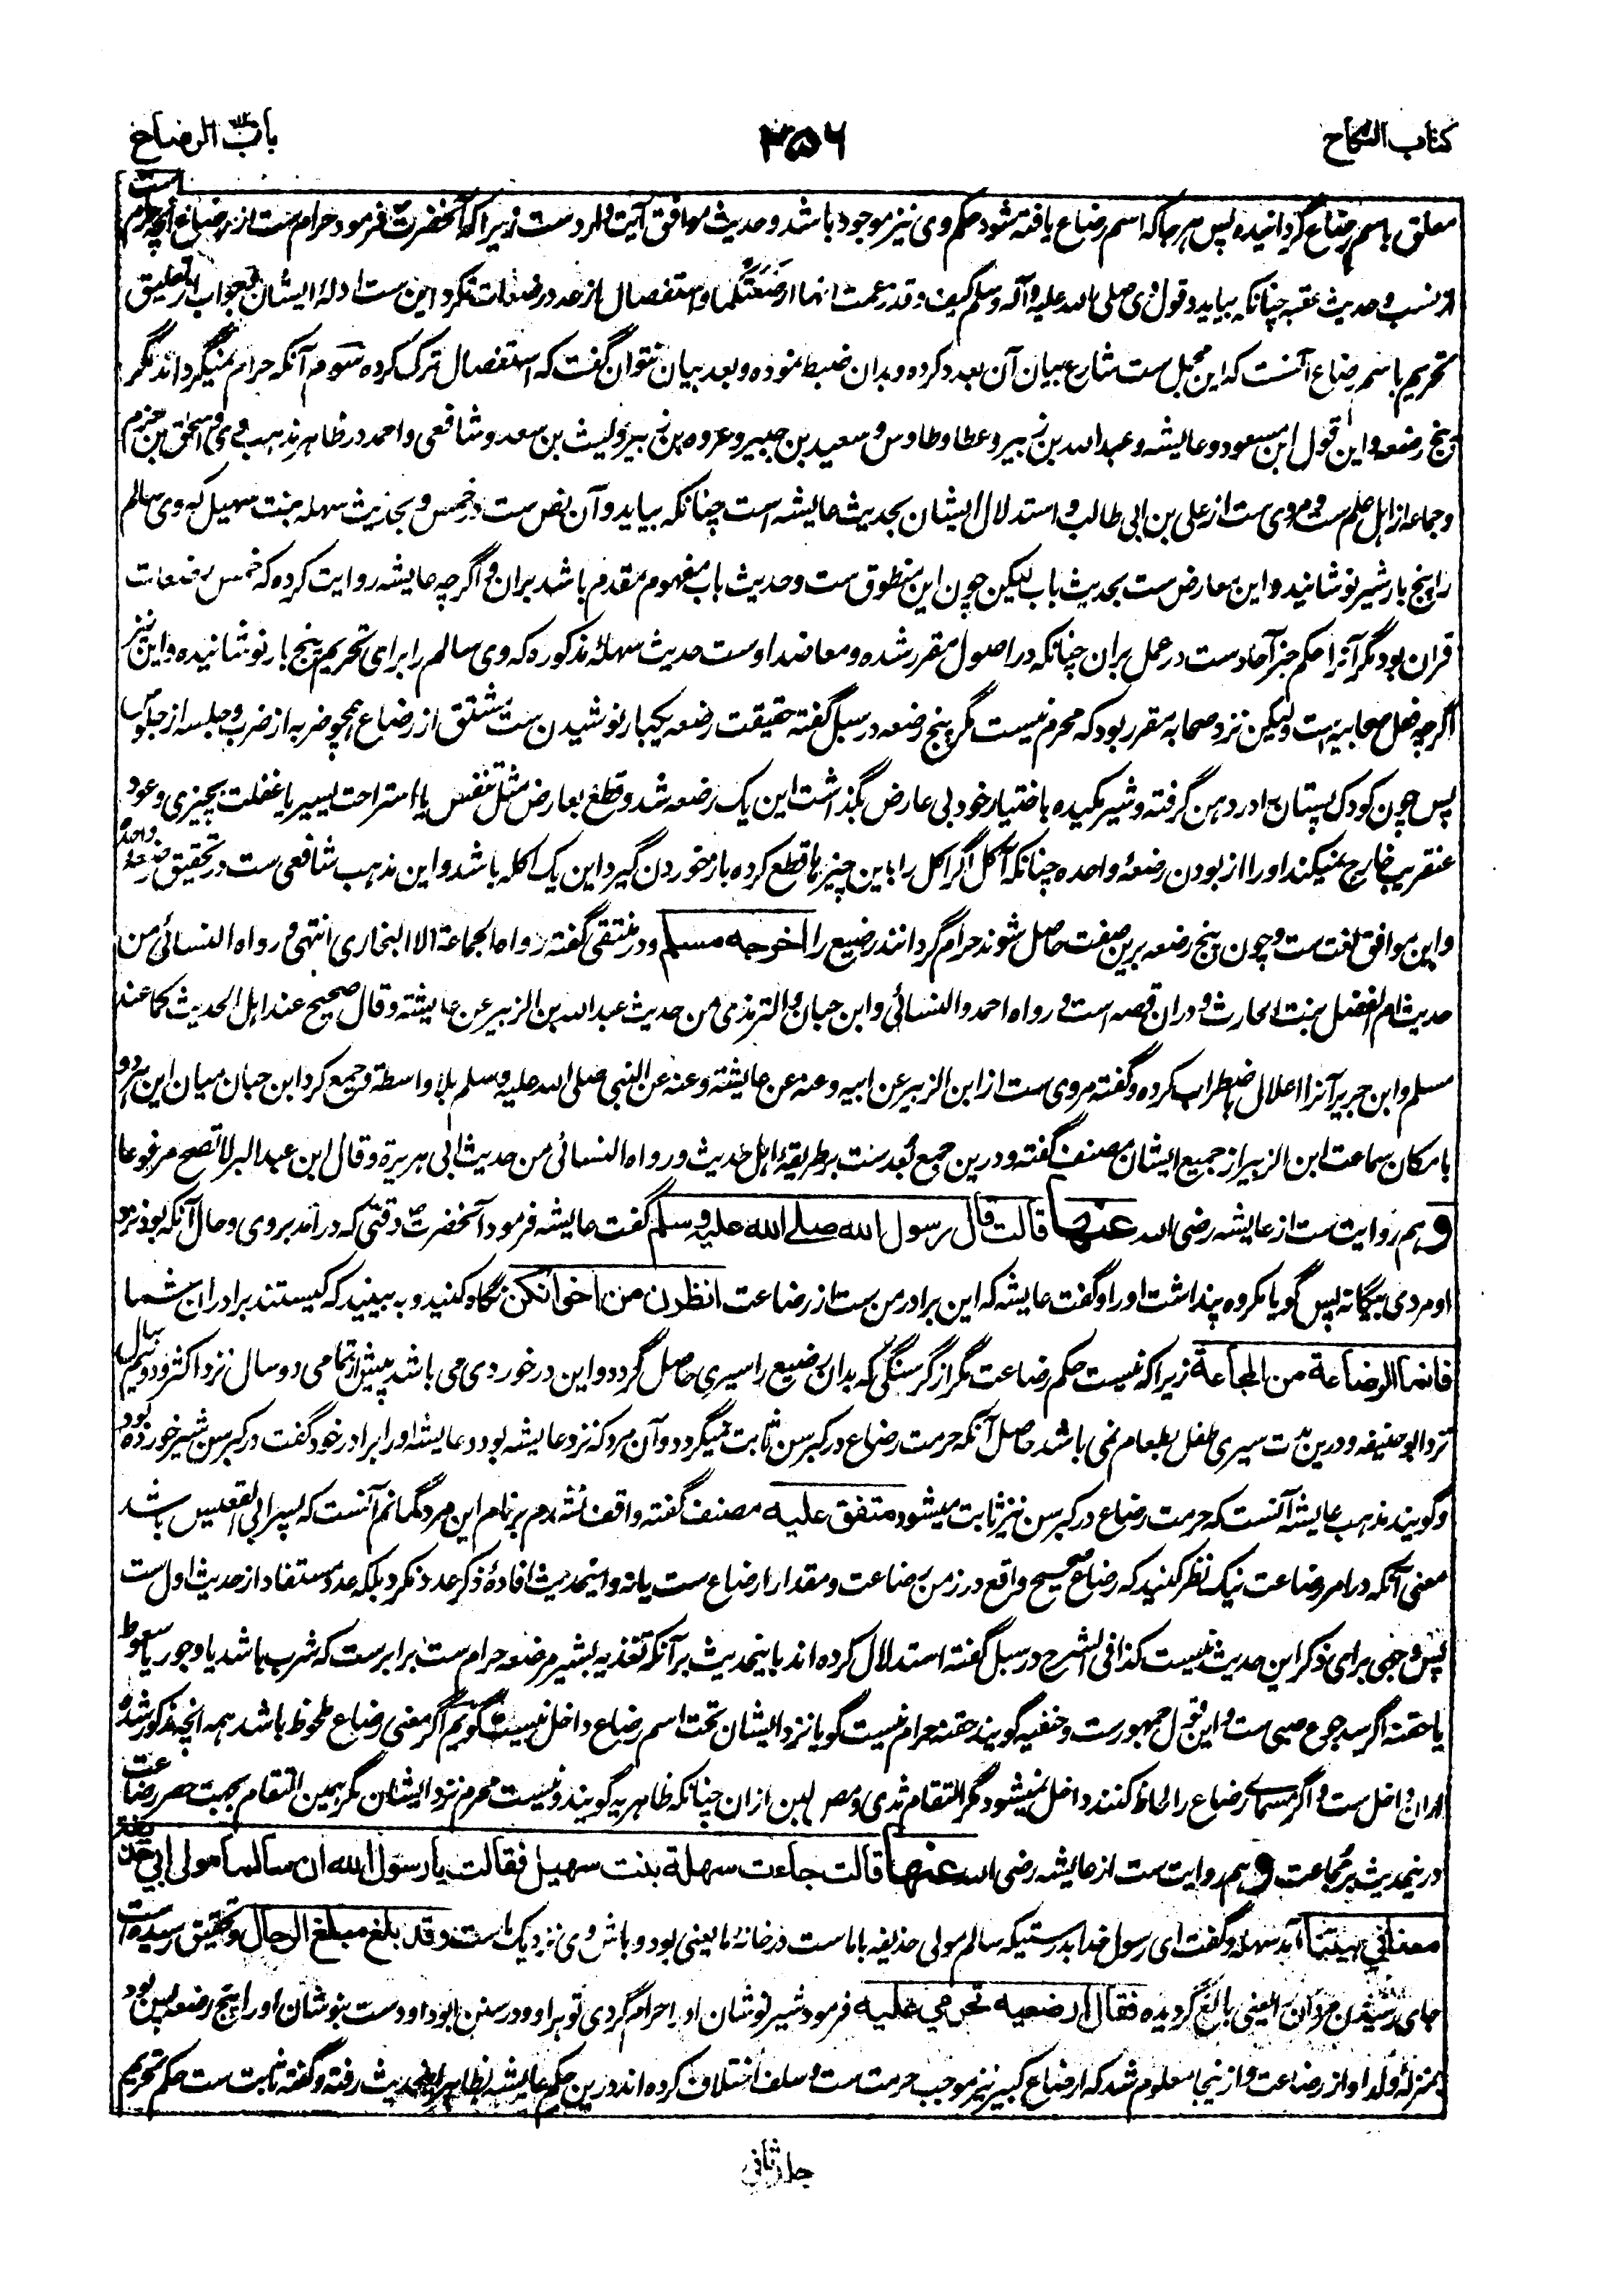 کتاب النکاح
۳۵۶
باب الرضاع
معلق باسم رضاع گردانیده پس هر جا که اسم رضاع یافته شود حکم وی نیز موجود باشد و حدیث موافق آیت وارد ست زیرا که آنحضرتؐ فرمود حرام ست از رضاع آنچه حرام است
از نسب و حدیث عقبه چنانکه بیاید و قول وی صلی الله علیه و آله و سلم کیف وقد زعمت انها ارضعتکما و استفصال از عدد رضعات نکرد این ست ادلهٔ ایشان و جواب از تعلیق
تحریم باسم رضاع آنست که این مجمل ست شارع بیان آن بعدد کرده و بدان ضبط نموده و بعد بیان نتوان گفت که استفصال ترک کرده سوم آنکه حرام نمیگرداند مگر
پنج رضعه و این قول ابن مسعود و عایشه و عبد الله بن زبیر و عطا و طاوس و سعید بن جبیر و عروه بن زبیر و لیث بن سعد و شافعی و احمد در ظاهر مذهب وی و اسحق و ابن حزم
و جماعه از اهل علم ست و مروی ست از علی بن ابی طالب و استدلال ایشان بحدیث عایشه است چنانکه بیاید و آن نص ست در خمس و بحدیث سهله بنت سهیل که وی سالم
را پنج بار شیر نوشانید و این معارض ست بحدیث باب لیکن چون این منطوق ست و حدیث باب مفهوم مقدم باشد بران و اگرچه عایشه روایت کرده که خمس رضعات
قران بود مگر آنرا حکم خبر آحادست در عمل بران چنانکه در اصول مقرر شده و معاضد اوست حدیث سهلهٔ مذکوره که وی سالم را برای تحریم پنج بار نوشانیده و این نیز
اگرچه فعل صحابیه است و لیکن نزد صحابه مقرر بود که محرم نیست مگر پنج رضعه در سبل گفته حقیقت رضعه یکبار نوشیدن ست مشتق از رضاع همچو ضربه از ضرب و جلسه از جلوس
پس چون کودک پستان را در دهن گرفته و شیر مکیده باختیار خود بی عارض بگذاشت این یک رضعه شد و قطع بعارض مثل تنفس یا استراحت یسیر یا غفلت بچیزی و عود
عنقریب خارج نمیکند او را از بودن رضعهٔ واحده چنانکه آکل اگر اکل را باین چیزها قطع کرده باز خوردن گیرد این یک اکله باشد و این مذهب شافعی ست در تحقیق رضعهٔ واحده
و این موافق لغت ست و چون پنج رضعه برین صفت حاصل شوند حرام گردانند رضیع را اخرجه مسلم و در منتقی گفته رواه الجماعة الا البخاری انتهی و رواه النسائی من
حدیث ام الفضل بنت الحارث و دران قصه است و رواه احمد و النسائی و ابن حبان و الترمذی من حدیث عبد الله بن الزبیر عن عایشه و قال صحیح عند اهل الحدیث کما عند
مسلم و ابن جریر آنرا اعلال باضطراب کرده و گفته مروی ست از ابن الزبیر عن ابیه و عنه عن عایشة و عنه عن النبی صلی الله علیه وسلم بلا واسطة و جمع کرد ابن حبان میان این هر دو
بامکان سماعت ابن الزبیر از جمیع ایشان مصنف گفته و درین جمع بُعد ست بر طریقهٔ اهل حدیث و رواه النسائی من حدیث ابی هریرة و قال ابن عبد البر لا تصح مرفوعا
و هم روایت ست از عایشه رضی الله عنها قالت قال رسول الله صلے الله علیه وسلم گفت عایشه فرمود آنحضرتؐ وقتی که در آمد بروی و حال آنکه بود نزد
او مردی بیگانه پس گویا مکروه پنداشت او را و گفت عایشه که این برادر من ست از رضاعت انظرن من اخوانکن نگاه کنید و به بینید که کیستند برادران شما
فانما الرضاعة من المجاعة زیرا که نیست حکم رضاعت مگر از گرسنگی که بدان رضیع را سیری حاصل گردد و این در خوردی می باشد پیش از تمامی دو سال نزد اکثر و دو نیم سال
نزد ابو حنیفه و درین مدت سیری طفل بطعام نمی باشد حاصل آنکه حرمت رضاع در کبر سن ثابت نمیگردد و آن مرد که نزد عایشه بود و عایشه او را برادر خود گفت در کبر سن شیر خورده بود
و گویند مذهب عایشه آنست که حرمت رضاع در کبر سن نیز ثابت میشود متفق علیه مصنف گفته واقف نشدم بر نام این مرد گمانم آنست که پسر ابی القعیس باشد
معنی آنکه در امر رضاعت نیک نظر کنید که رضاع صحیح واقع در زمن رضاعت و مقدار ارضاع ست یا نه و اینحدیث افادهٔ ذکر عدد نکرد بلکه عدد مستفاد از حدیث اول ست
پس وجهی برای ذکر این حدیث نیست کذا فی الشرح در سبل گفته استدلال کرده اند باینحدیث بر آنکه تغذیه بشیر مرضعه حرام ست برابرست که شرب باشد یا وجور یا سعوط
یا حقنه اگر سد جوع صبی ست و این قول جمهورست و حنفیه گویند حقنه حرام نیست گویا نزد ایشان تحت اسم رضاع داخل نیست گویم اگر معنی رضاع ملحوظ باشد همه آنچه مذکور شده
دران داخل ست و اگر مسمای رضاع را لحاظ کنند داخل نمیشود مگر التقام ثدی و مص لبن ازان چنانکه ظاهریه گویند و نیست محرم نزد ایشان مگر همین التقام بجهت حصر رضاعت
درینحدیث بر مجاعت و هم روایت ست از عایشه رضی الله عنها قالت جاءت سهلة بنت سهیل فقالت یا رسول الله ان سالما مولی ابی حذیفة
معنا فی بیتنا آمد سهله و گفت ای رسول خدا بدرستیکه سالم مولی حذیفه با ماست در خانهٔ ما یعنی بود و باش وی نزدیک ماست وقد بلغ مبلغ الرجال و تحقیق رسیده است
جای رسیدن مردان را یعنی بالغ گردیده فقال ارضعیه تحرمی علیه فرمود شیر نوشان او را حرام گردی تو بر او و در سنن ابو داودست بنوشان او را پنج رضعه پس بود
بمنزلهٔ ولد او از رضاعت و ازینجا معلوم شد که ارضاع کبیر نیز موجب حرمت ست و سلف اختلاف کرده اند درین حکم عایشه بظاهر اینحدیث رفته و گفته ثابت ست حکم تحریم
جلد ثانی